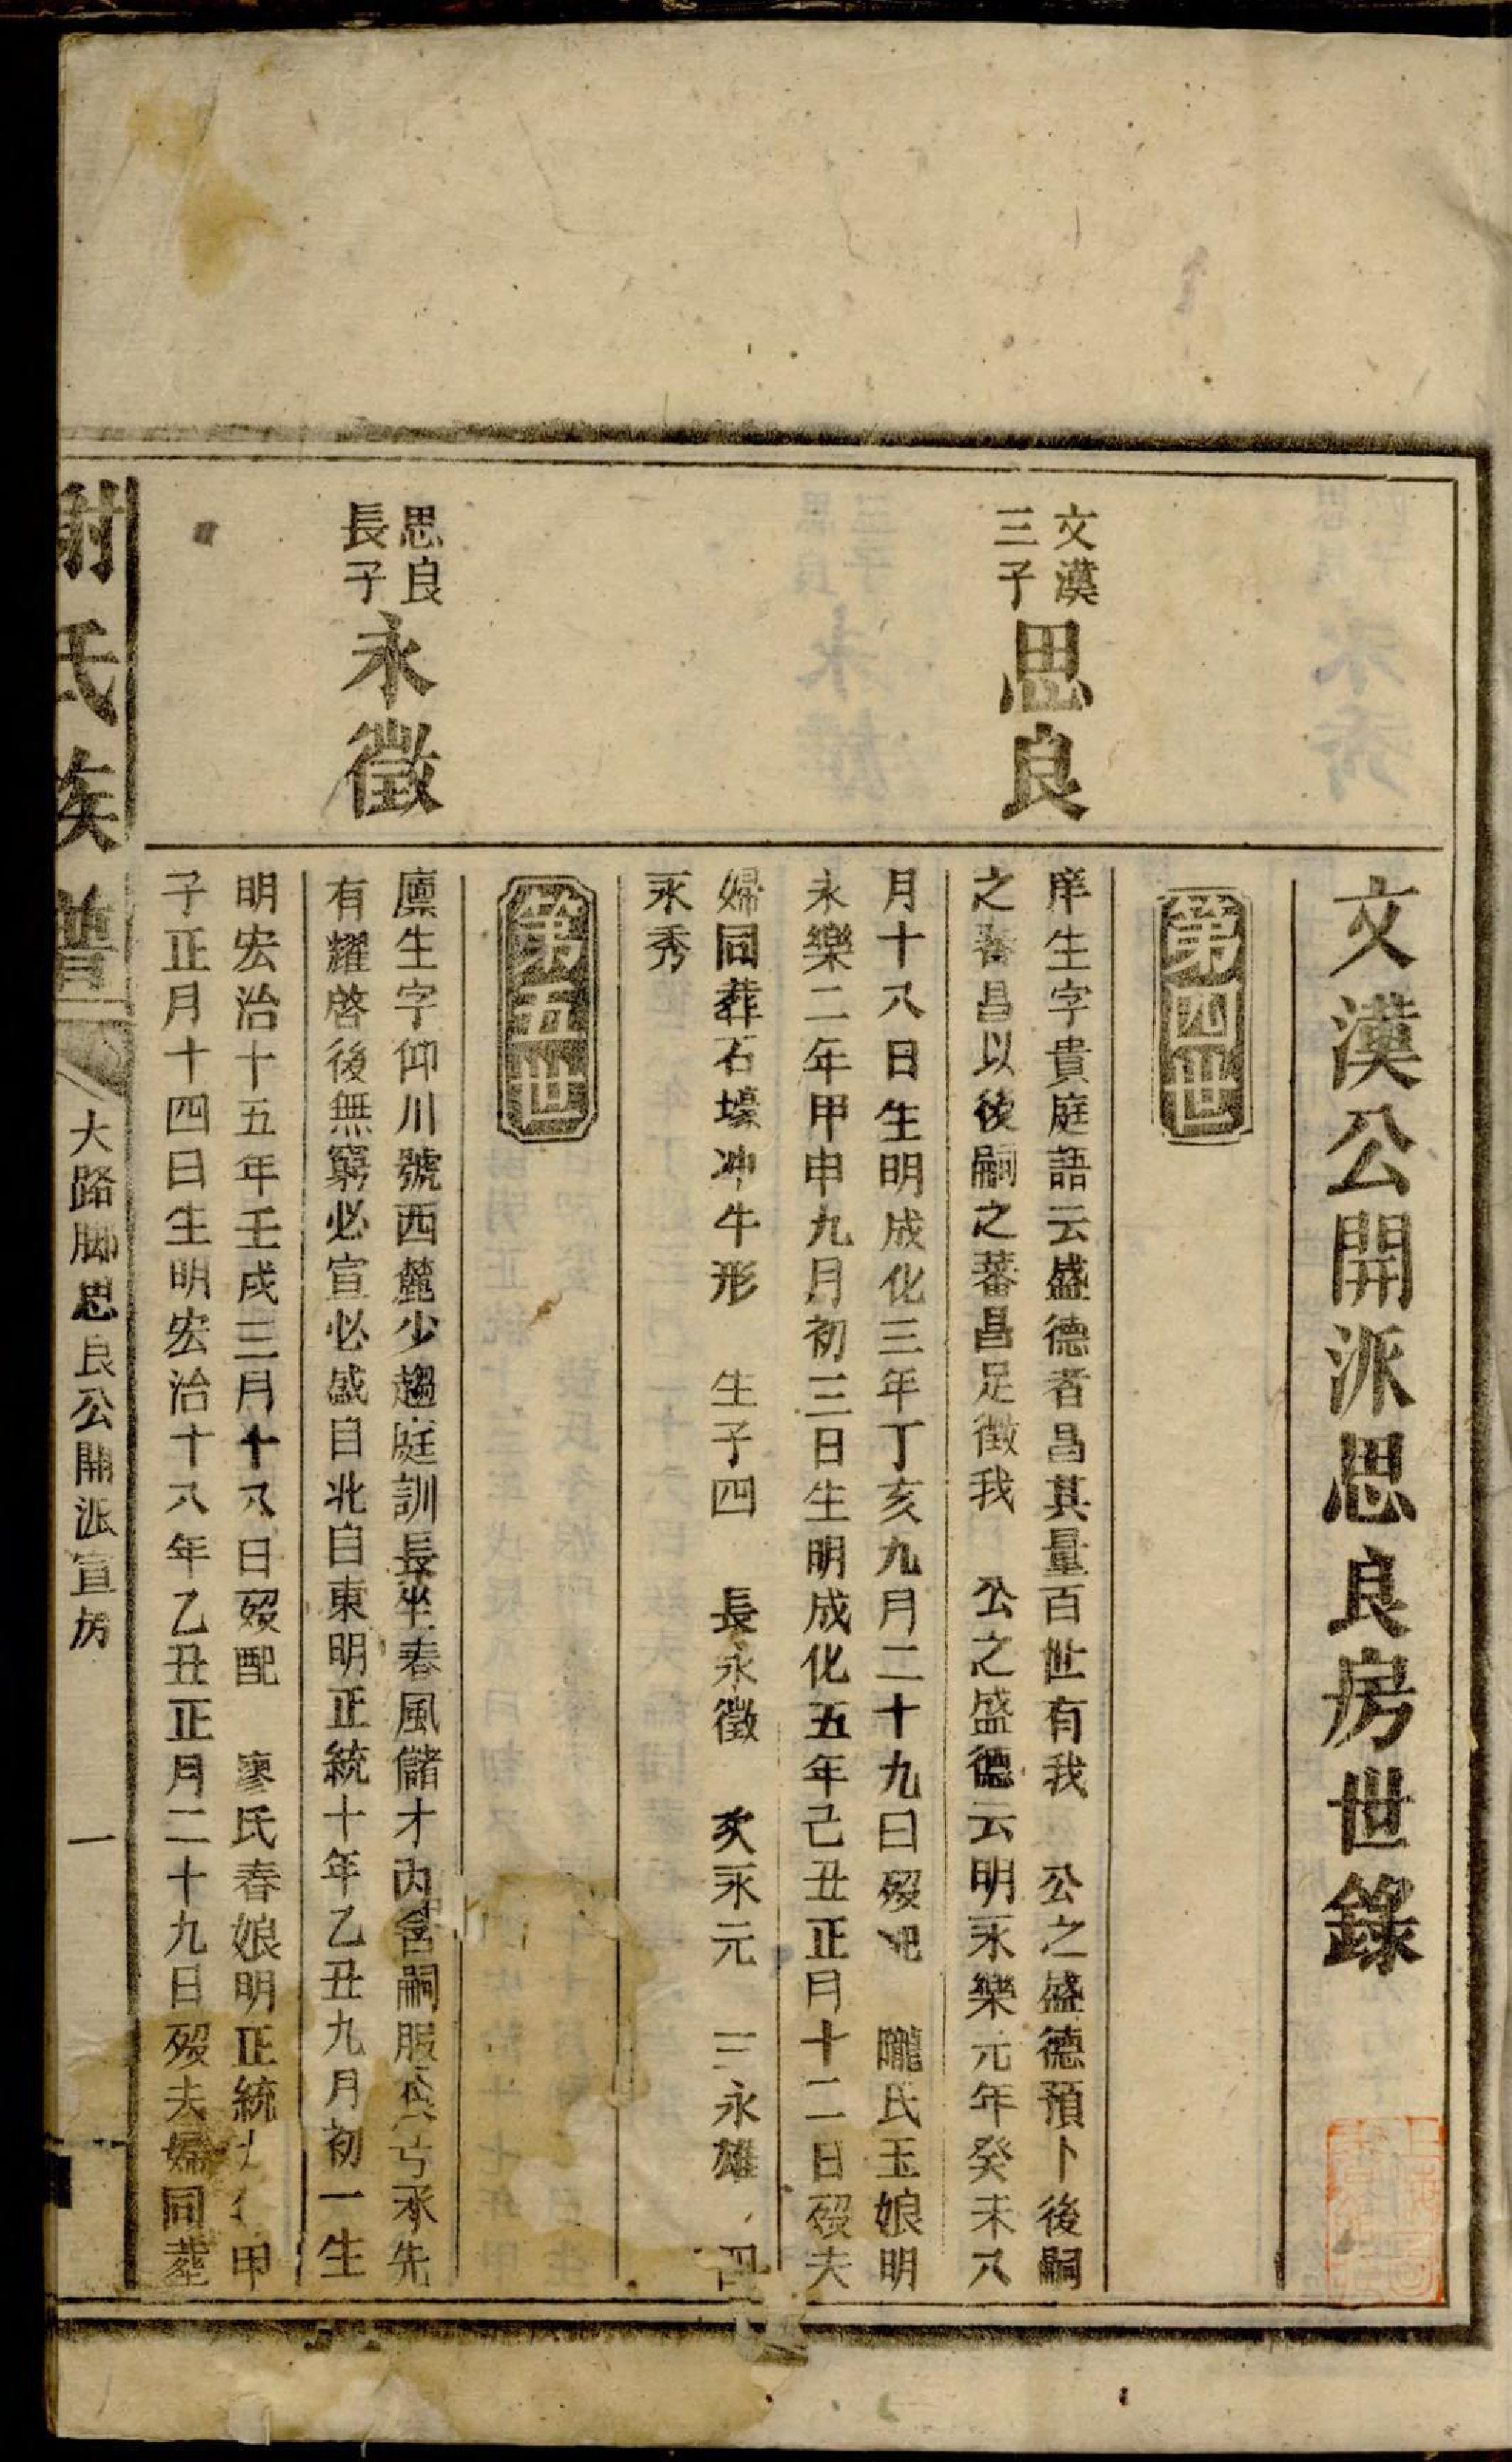 文漢公開派思良房世錄
第四世
文漢
三子
思良
庠生字貴庭語云盛德者昌其量百世有我　公之盛德預卜後嗣
之蕃昌以後嗣之蕃昌足徵我　公之盛德云明永樂元年癸未八
月十八日生明成化三年丁亥九月二十九日歿配　隴氏玉娘明
永樂二年甲申九月初三日生明成化五年己丑正月十二日歿夫
婦同葬石壕冲牛形　生子四　長永徵　次永元　三永雄　四
永秀
第五世
思良
長子
永徵
廪生字仰川號西麓少趨庭訓長坐春風儲才內舍嗣服 承先
有耀啓後無窮必宣必盛自北自東明正統十年乙丑九月初一生
明宏治十五年壬戌三月十八日歿配　廖氏春娘明正統 甲
子正月十四日生明宏治十八年乙丑正月二十九日歿夫婦同塟
謝氏族譜
大路脚思良公開派宣房
一